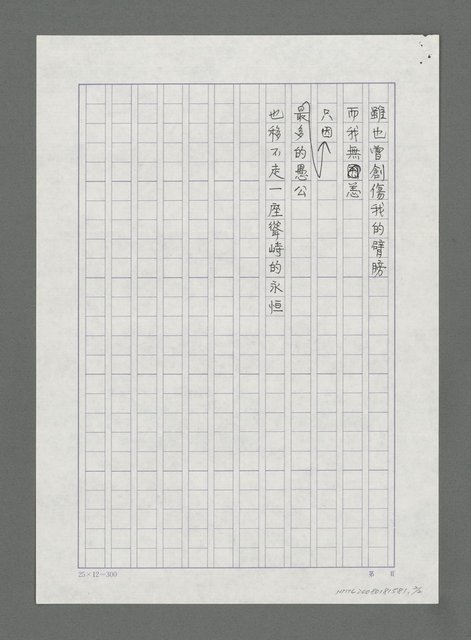 雖也曾創傷我的臂膀
而我無恙
只因
最多的愚公
也移不走一座聳峙的永恒
25×12=300
第 頁